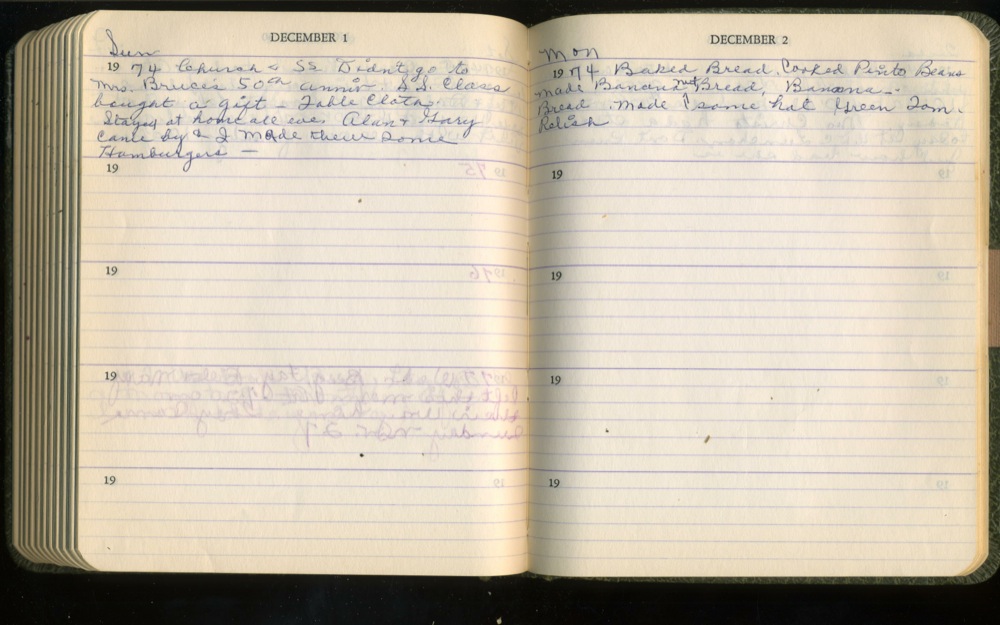 DECEMBER 1
Sun
1974 Church & SS Didn't go to
Mrs. Bruce's 50th anniv. S.S. Class
bought a gift - Table Cloth.
Stayed at home all eve. Alan & Gary
came by & I made them some
Hamburgers —
19
19
19
19
DECEMBER 2
Mon
1974 Baked Bread. Cooked Pinto Beans
made Banana nut Bread, Banana
Bread. Made some hot Green Tom.
Relish
19
19
19
19